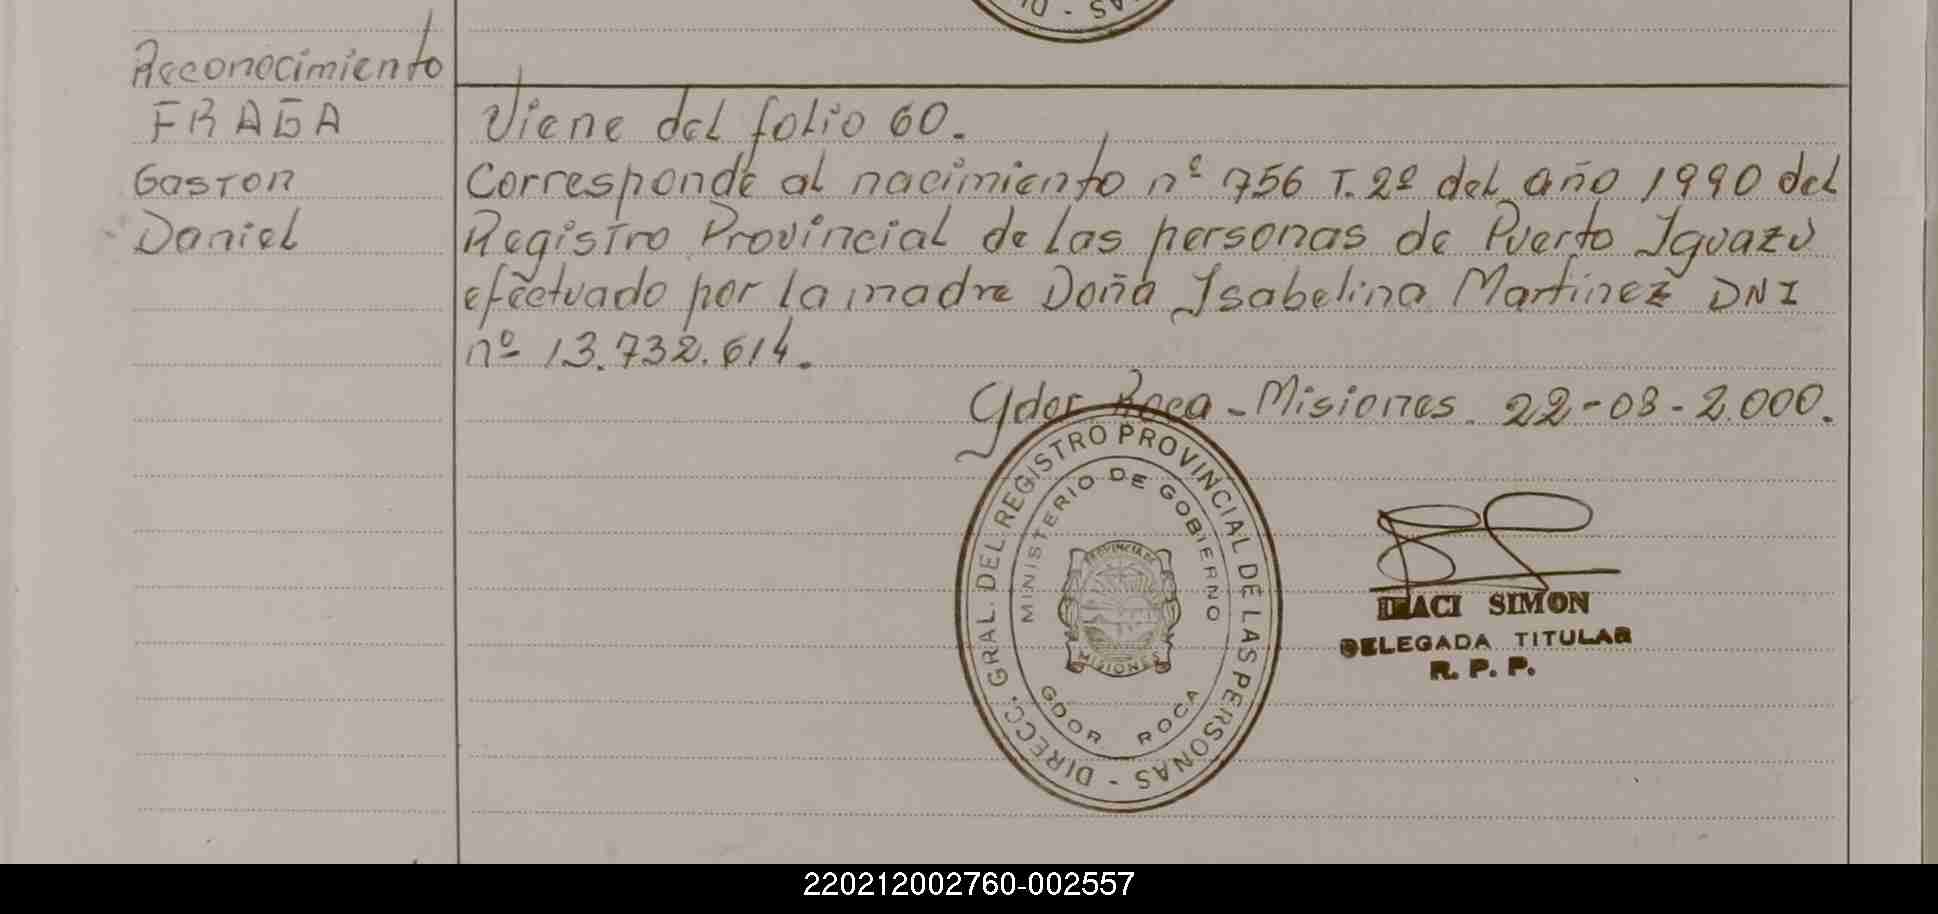 Reconocimiento
FRAGA
Gaston
Daniel
Viene del folio 60.
Corresponde al nacimiento nº 756 T. 2º del año 1990 del
Registro Provincial de las personas de Puerto Iguazú
efectuado por la madre Doña Isabelina Martinez DNI
nº 13.732.614.
Gdor Roca - Misiones. 22-03-2.000.
DIRECC. GRAL. DEL REGISTRO PROVINCIAL DE LAS PERSONAS -
MINISTERIO DE GOBIERNO
PROVINCIA DE
MISIONES
GDOR. ROCA
SIMON
DELEGADA TITULAR
R. P. P.
220212002760-002557